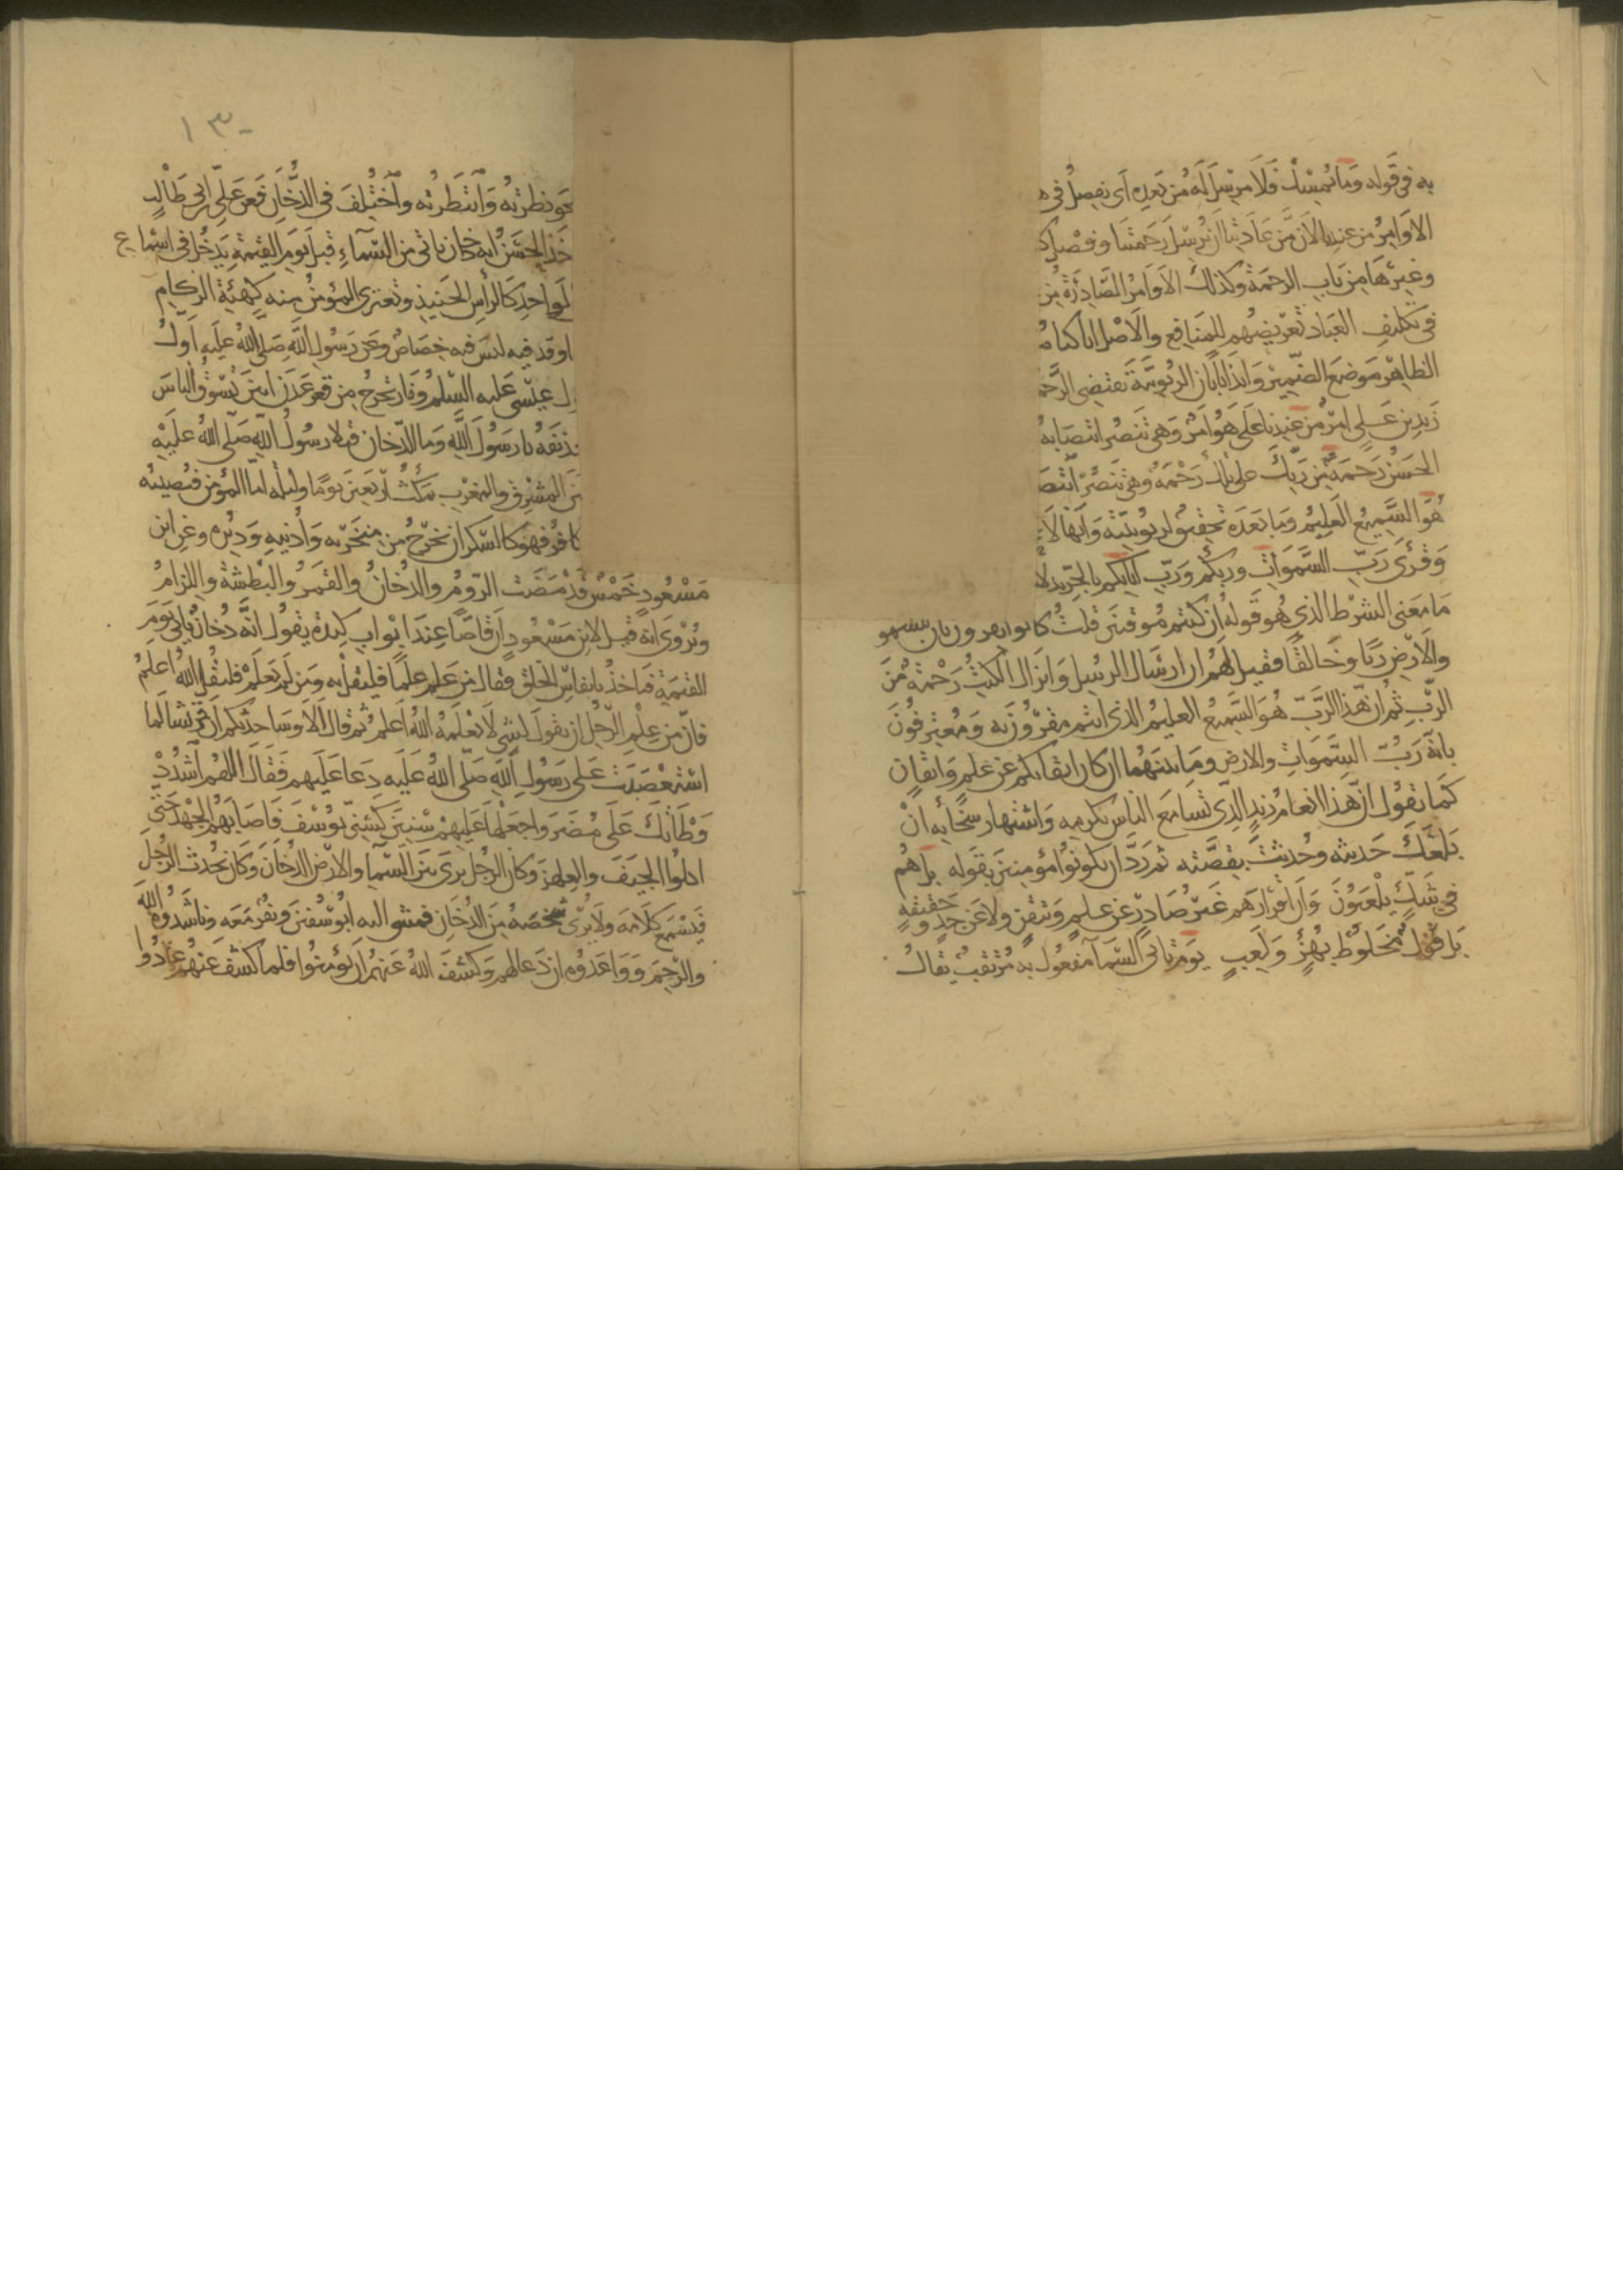 به في قوله وما يمسك فلا مرسل له من بعده اي يفصل في ه
الاوامر من عندنا لان من عادتنا ان نرسل رحمتنا وفصل ك
وغيرها من باب الرحمة وكذلك الاوامر الصادرة من
في تكليف العباد تعريضهم للمنافع والاصل انا كنا م
الظاهر موضع الضمير وايذانا بان الربوبية تقتضي الرحم
زيد بن علي امر من عندنا على هو امر وهي تنصر انتصابه
الحسن رحمة من ربك على تلك رحمة وهي تنصر انتص
هو السميع العليم وما بعده تحقيق لربوبيته وانها لا
وقرئ رب السموات وربكم ورب ابائكم بالجر بدلا
ما معنى الشرط الذي هو قوله ان كنتم موقنين قلت كانوا يقرون بان للسمو
والارض ربا وخالقا فقيل لهم ان ارسال الرسل وانزال الكتب رحمة من
الرب ثم ان هذا الرب هو السميع العليم الذي انتم مقرون به ومعترفون
بانه رب السموات والارض وما بينهما ان كان اقراركم عن علم وايقان
كما تقول ان هذا انعام زيد الذي تسامع الناس بكرمه واشتهار سخايه ان
بلغك حديثه وحدثت بقصته ثم رد ان يكونوا مؤمنين بقوله بل هم
في شك يلعبون وان اقرارهم غير صادر عن علم وتيقن ولا عن جد وحقيقة
بل قول مخلوط بهزؤ ولعب يوم تاتي السما مفعول به مرتقب يقال
١٣٠
نحو نظرته وانتظرته واختلف في الدخان فعن علي ابن ابي طالب
خذ الحسن انه دخان ياتي من السماء قبل يوم القيمة يدخل في اسماع
لواحد كالراس الحنيذ وتعتري المؤمن منه كهيئة الزكام
اوقد فيه ليس فيه خصاص وعن رسول الله صلى الله عليه اول
ل عيسى عليه السلم ونار تخرج من قعر عدن ابين تسوق الناس
حذيفه يا رسول الله وما الدخان فتلا رسول الله صلى الله عليه
بين المشرق والمغرب يمكث اربعين يوما وليله اما المؤمن فيصيبه
كافر فهو كالسكران يخرج من منخريه واذنيه ودبره وعن ابن
مسعود خمس قد مضت الروم والدخان والقمر والبطشة واللزام
ويروى انه قيل لابن مسعود ان قاصا عند ابواب كندة يقول انه دخان ياتي يوم
القيمة فياخذ بانفاس الخلق فقال من علم علما فليقل به ومن لم يعلم فليقل الله اعلم
فان من علم الرجل ان يقول لشي لا يعلمه الله اعلم ثم قال الا وساحدثكم ان قريشا لما
استعصبت على رسول الله صلى الله عليه دعا عليهم فقال اللهم اشدد
وطأتك على مضر واجعلها عليهم سنين كسني يوسف فاصابهم الجهد حتى
اكلوا الجيف والعلهز وكان الرجل يرى بين السما والارض الدخان وكان يحدث الرجل
فيسمع كلامه ولا يرى شخصه من الدخان فمشى اليه ابو سفين ونفر معه وناشدوه الله
والرحم وواعدوه ان دعا لهم وكشف الله عنهم ان يؤمنوا فلما كشف عنهم عادوا